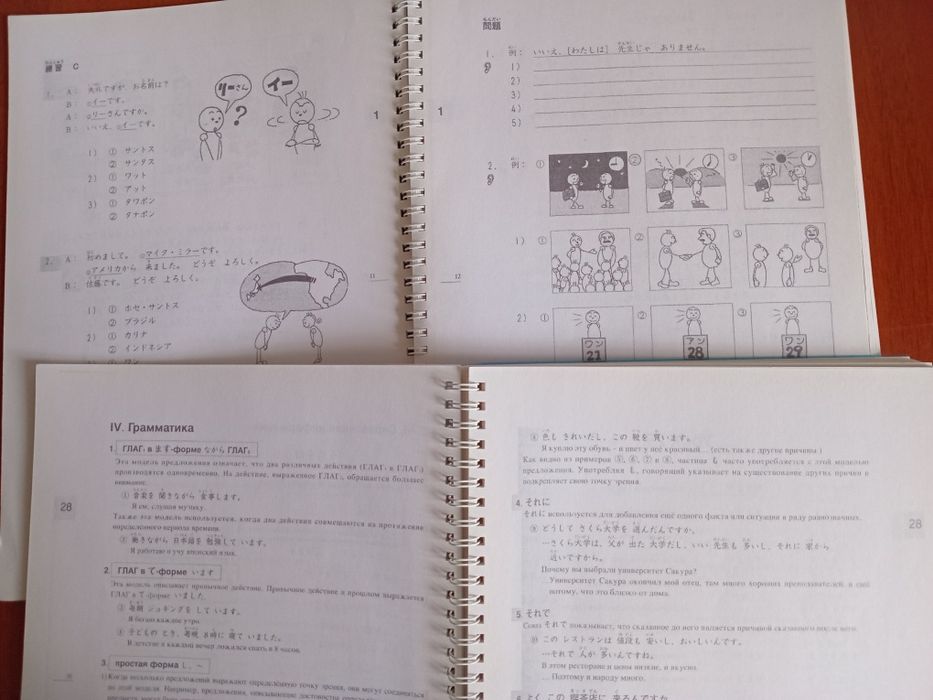 練習 C
1. A: 失礼ですが、お名前は?
B: ①イーです。
A: ②リーさんですか。
B: いいえ、①イーです。
リーさん
?
イー
1) ① サントス
② サンタス
2) ① ワット
② アット
3) ① タワポン
② タナポン
1
2. A: 初めまして。 ①マイク・ミラーです。
②アメリカから 来ました。 どうぞ よろしく。
B: 佐藤です。 どうぞ よろしく。
1) ① ホセ・サントス
② ブラジル
2) ① カリナ
② インドネシア
3) ① ワン
11
問題
1. 例: いいえ、[わたしは] 先生じゃ ありません。
1)
2)
3)
4)
5)
1
2. 例: ① ② ③
1) ① ② ③
2) ① ② ③
ワン 21
アン 28
ワン 29
12
IV. Грамматика
1. ГЛАГ₁ в ます-форме ながら ГЛАГ₂
Эта модель предложения означает, что два различных действия (ГЛАГ₁ и ГЛАГ₂)
производятся одновременно. На действие, выраженное ГЛАГ₂, обращается большее
внимание.
① 音楽を 聞きながら 食事します。
Я ем, слушая музыку.
Также эта модель используется, когда два действия совмещаются на протяжении
определенного периода времени.
② 働きながら 日本語を 勉強して います。
Я работаю и учу японский язык.
28
2. ГЛАГ в て-форме います
Эта модель описывает привычное действие. Привычное действие в прошлом выражается
ГЛАГ в て-форме いました.
③ 毎朝 ジョギングを して います。
Я бегаю каждое утро.
④ 子どもの とき、毎晩 8時に 寝て いました。
В детстве я каждый вечер ложился спать в 8 часов.
3. простая форма し、~
1) Когда несколько предложений выражают определённую точку зрения, они могут соединяться
⑧ 色も きれいだし、この 靴を 買います。
Я куплю эту обувь - и цвет у неё красивый... (есть также другие причины.)
Как видно из примеров ⑤, ⑥, ⑦ и ⑧, частица も часто употребляется с этой моделью
предложения. Употребляя も, говорящий указывает на существование других причин и
подкрепляет свою точку зрения.
4. それに
それに используется для добавления ещё одного факта или ситуации в ряду равнозначных.
⑨ どうして さくら大学を 選んだんですか。
…さくら大学は、父が 出た 大学だし、いい 先生も 多いし、それに 家から
近いですから。
Почему вы выбрали университет Сакура?
...Университет Сакура окончил мой отец, там много хороших преподавателей, и ещё
потому, что это близко от дома.
28
5. それで
Союз それで показывает, что сказанное до него является причиной сказанного после него.
⑩ この レストランは 値段も 安いし、おいしいんです。
…それで 人が 多いんですね。
В этом ресторане и цены низкие, и вкусно.
... Поэтому и народу много.
6. よく この 喫茶店に 来るんですか